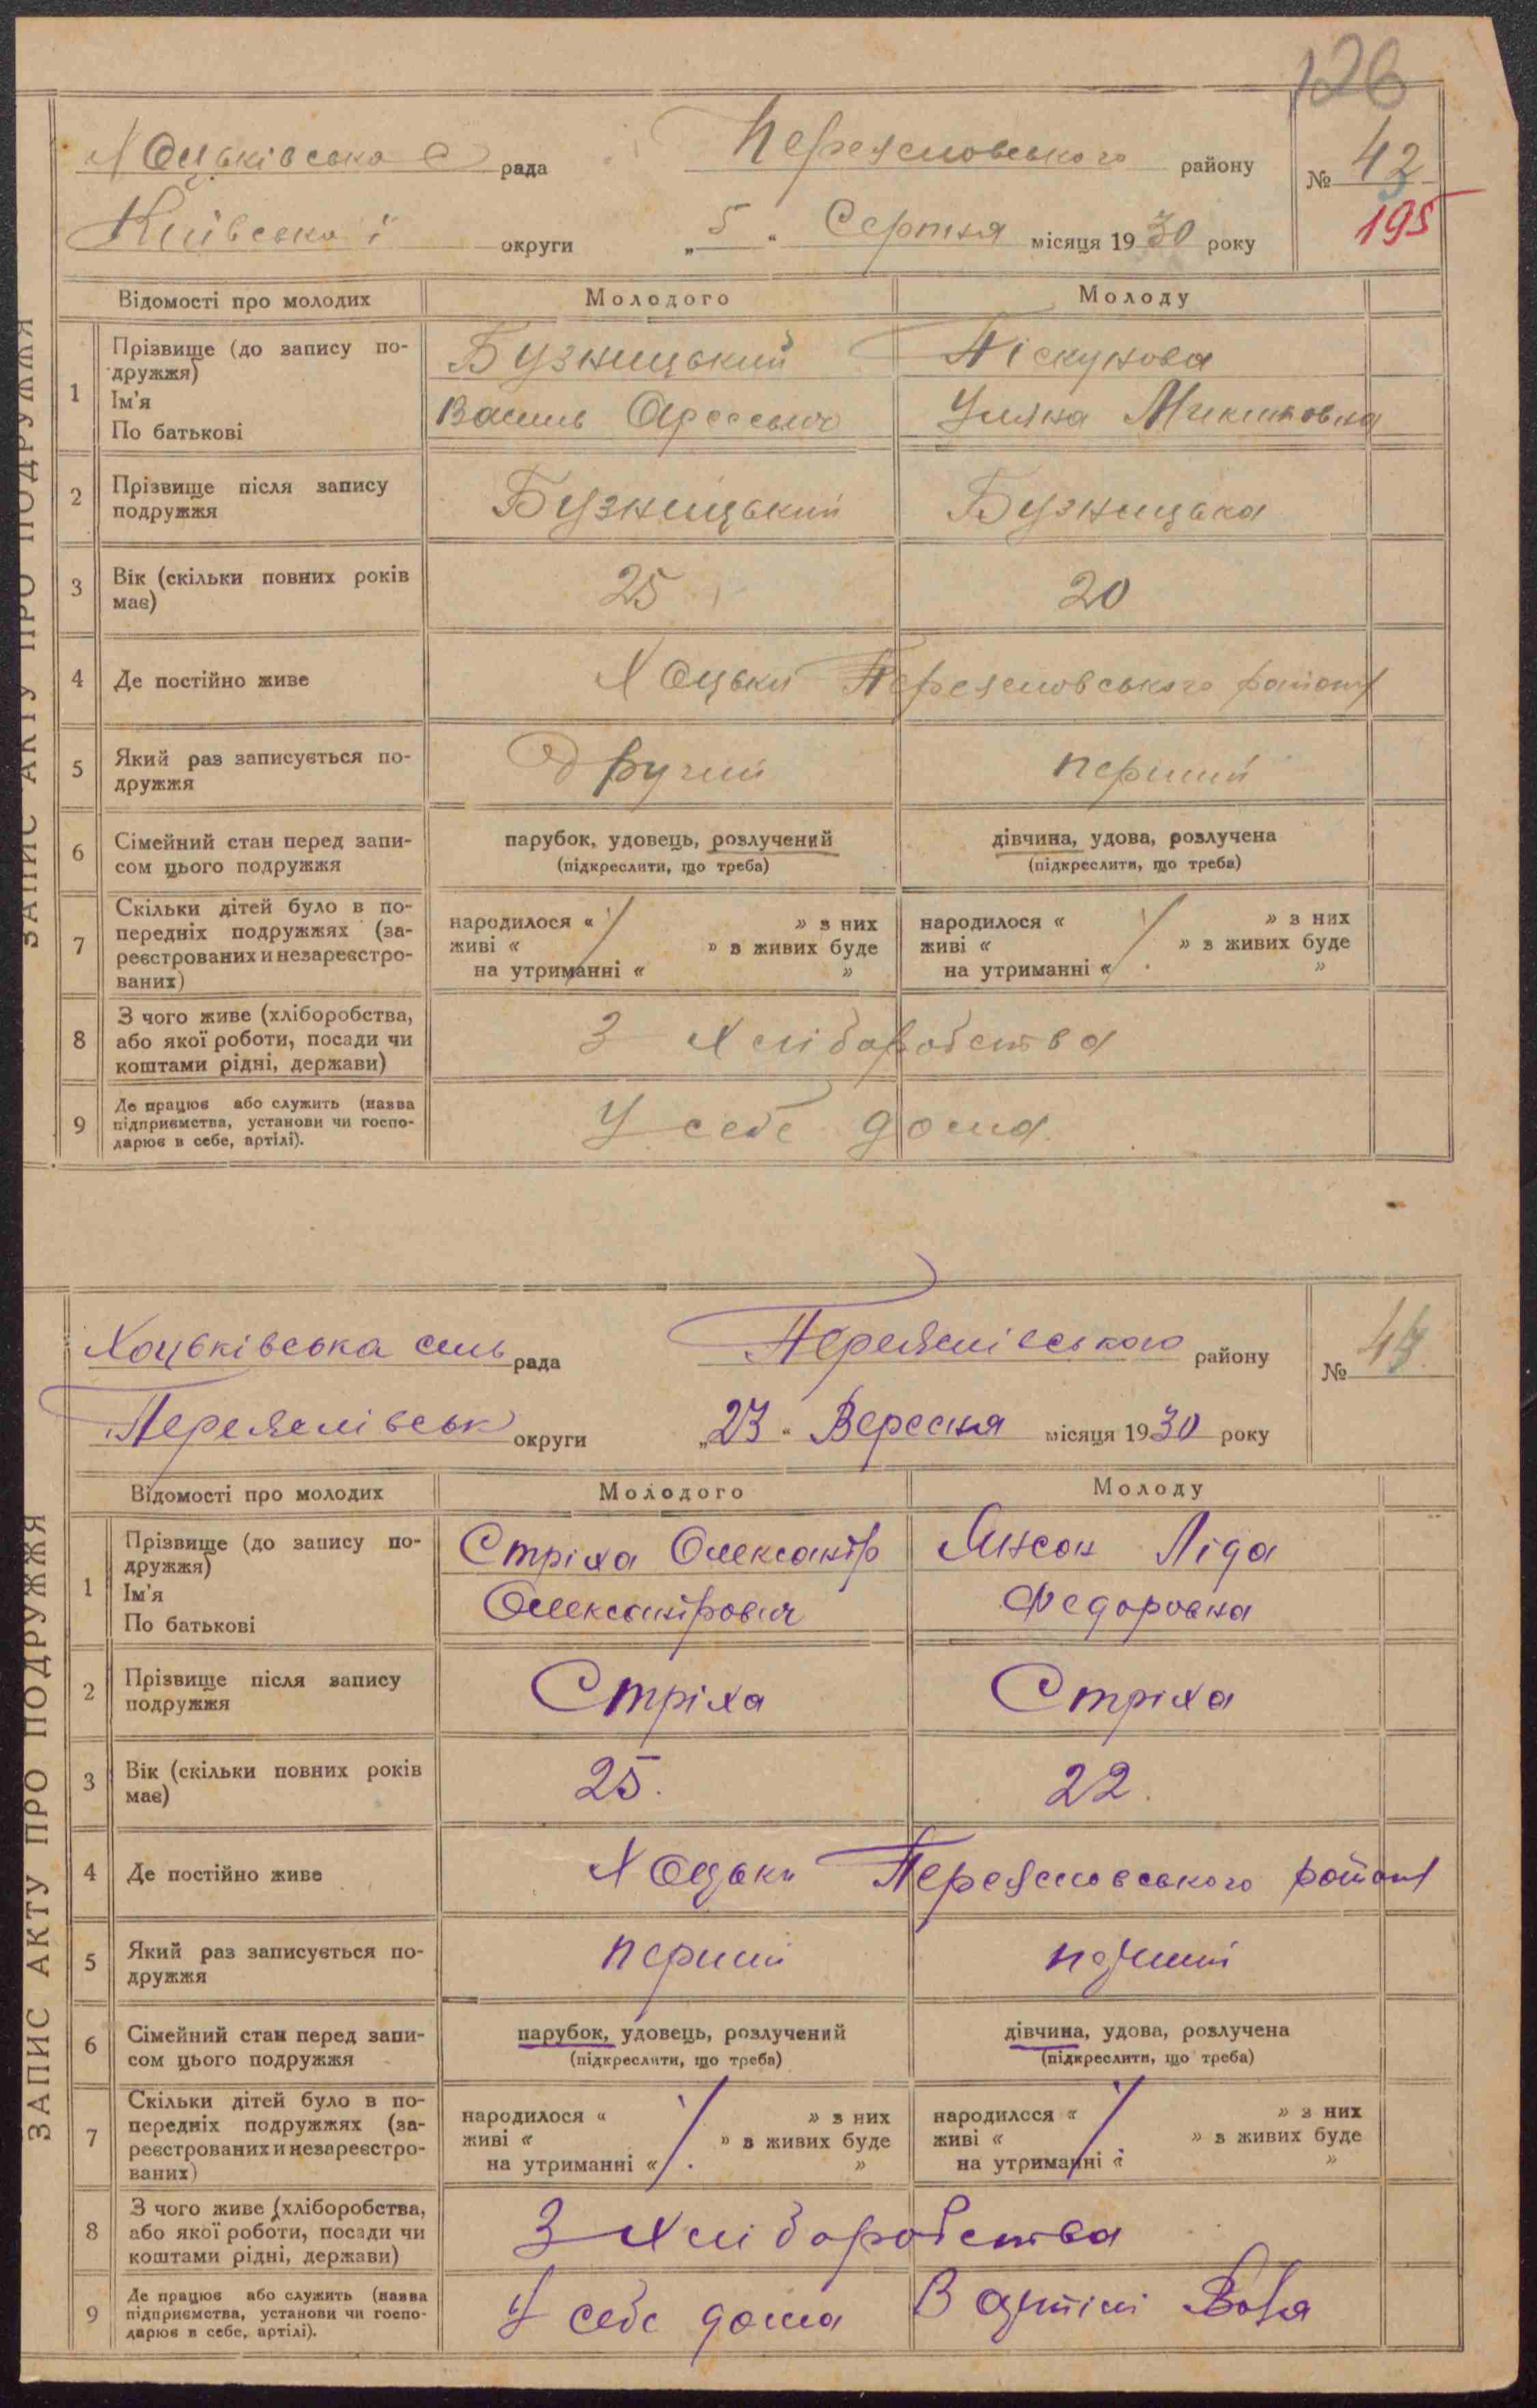 126
Хоцьківська с рада Переяславського району № 42
Київської округи „5“ Серпня місяця 1930 року 195
ЗАПИС АКТУ ПРО ПОДРУЖЖЯ
Відомості про молодих Молодого Молоду
1 Прізвище (до запису по-
дружжя)
Ім'я
По батькові
Бузницький Піскунова
Василь Уляна Микитовна
2 Прізвище після запису
подружжя
Бузницький Бузницька
3 Вік (скільки повних років
має)
25 20
4 Де постійно живе Хоцьки Переяславського району
5 Який раз записується по-
дружжя
Другий перший
6 Сімейний стан перед запи-
сом цього подружжя
парубок, удовець, розлучений дівчина, удова, розлучена
(підкреслити, що треба) (підкреслити, що треба)
7 Скільки дітей було в по-
передніх подружжях (за-
реєстрованих и незареєстро-
ваних)
народилося « » з них народилося « » з них
живі « » в живих буде живі « » в живих буде
на утриманні « » на утриманні « »
8 З чого живе (хліборобства,
або якої роботи, посади чи
коштами рідні, держави)
З хліборобства
9 Де працює або служить (назва
підприємства, установи чи госпо-
дарює в себе, артілі).
У себе дома
Хоцьківська силь рада Переяслівського району №
Переяслівськ округи „23“ Вересня місяця 1930 року
ЗАПИС АКТУ ПРО ПОДРУЖЖЯ
Відомості про молодих Молодого Молоду
1 Прізвище (до запису по-
дружжя)
Ім'я
По батькові
Стріха Олександр Янсон Ліда
Олександрович Федоровна
2 Прізвище після запису
подружжя
Стріха Стріха
3 Вік (скільки повних років
має)
25. 22.
4 Де постійно живе Хоцьки Переяславського району
5 Який раз записується по-
дружжя
перший перший
6 Сімейний стан перед запи-
сом цього подружжя
парубок, удовець, розлучений дівчина, удова, розлучена
(підкреслити, що треба) (підкреслити, що треба)
7 Скільки дітей було в по-
передніх подружжях (за-
реєстрованих и незареєстро-
ваних)
народилося « » з них народилося « » з них
живі « » в живих буде живі « » в живих буде
на утриманні « » на утриманні « »
8 З чого живе (хліборобства,
або якої роботи, посади чи
коштами рідні, держави)
З хліборобства
9 Де працює або служить (назва
підприємства, установи чи госпо-
дарює в себе, артілі).
У себе дома В артілі